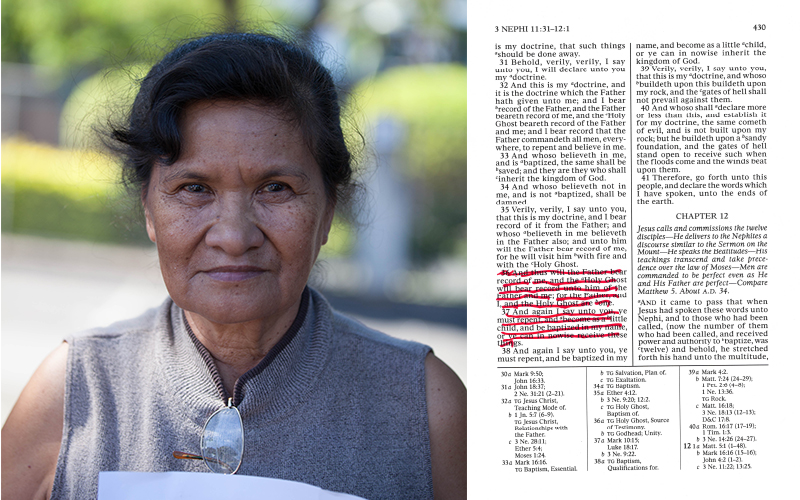 3 NEPHI 11:31–12:1
430
is my doctrine, that such things
ᵃshould be done away.
31 Behold, verily, verily, I say
unto you, I will declare unto you
my ᵃdoctrine.
32 And this is my ᵃdoctrine, and
it is the doctrine which the Father
hath given unto me; and I bear
ᵇrecord of the Father, and the Father
beareth record of me, and the ᶜHoly
Ghost beareth record of the Father
and me; and I bear record that the
Father commandeth all men, every-
where, to repent and believe in me.
33 And whoso believeth in me,
and is ᵃbaptized, the same shall be
ᵇsaved; and they are they who shall
ᶜinherit the kingdom of God.
34 And whoso believeth not in
me, and is not ᵃbaptized, shall be
damned.
35 Verily, verily, I say unto you,
that this is my doctrine, and I bear
record of it from the Father; and
whoso ᵃbelieveth in me believeth
in the Father also; and unto him
will the Father bear record of me,
for he will visit him ᵇwith fire and
with the ᶜHoly Ghost.
36 And thus will the Father bear
record of me, and the ᵃHoly Ghost
will bear record unto him of the
Father and me; for the Father, and
I, and the Holy Ghost are one.
37 And again I say unto you, ye
must repent, and ᵃbecome as a little
child, and be baptized in my name,
or ye can in nowise receive these
things.
38 And again I say unto you, ye
must repent, and be baptized in my
name, and become as a little ᵃchild,
or ye can in nowise inherit the
kingdom of God.
39 Verily, verily, I say unto you,
that this is my ᵃdoctrine, and whoso
ᵇbuildeth upon this buildeth upon
my rock, and the ᶜgates of hell shall
not prevail against them.
40 And whoso shall ᵃdeclare more
or less than this, and establish it
for my doctrine, the same cometh
of evil, and is not built upon my
rock; but he buildeth upon a ᵇsandy
foundation, and the gates of hell
stand open to receive such when
the floods come and the winds beat
upon them.
41 Therefore, go forth unto this
people, and declare the words which
I have spoken, unto the ends of
the earth.
CHAPTER 12
Jesus calls and commissions the twelve
disciples—He delivers to the Nephites a
discourse similar to the Sermon on the
Mount—He speaks the Beatitudes—His
teachings transcend and take prece-
dence over the law of Moses—Men are
commanded to be perfect even as He
and His Father are perfect—Compare
Matthew 5. About A.D. 34.
ᵃAND it came to pass that when
Jesus had spoken these words unto
Nephi, and to those who had been
called, (now the number of them
who had been called, and received
power and authority to ᵇbaptize, was
ᶜtwelve) and behold, he stretched
forth his hand unto the multitude,
30a Mark 9:50;
John 16:33.
31a John 18:37;
2 Ne. 31:21 (2–21).
32a TG Jesus Christ,
Teaching Mode of.
b 1 Jn. 5:7 (6–9).
TG Jesus Christ,
Relationships with
the Father.
c 3 Ne. 28:11;
Ether 5:4;
Moses 1:24.
33a Mark 16:16.
TG Baptism, Essential.
b TG Salvation, Plan of.
c TG Exaltation.
34a TG Baptism.
35a Ether 4:12.
b 3 Ne. 9:20; 12:2.
c TG Holy Ghost,
Baptism of.
36a TG Holy Ghost, Source
of Testimony.
b TG Godhead; Unity.
37a Mark 10:15;
Luke 18:17.
b 3 Ne. 9:22.
38a TG Baptism,
Qualifications for.
39a Mark 4:2.
b Matt. 7:24 (24–29);
1 Pet. 2:6 (4–8);
1 Ne. 13:36.
TG Rock.
c Matt. 16:18;
3 Ne. 18:13 (12–13);
D&C 17:8.
40a Rom. 16:17 (17–19);
1 Tim. 1:3.
b 3 Ne. 14:26 (24–27).
12 1a Matt. 5:1 (1–48).
b Mark 16:16 (15–16);
John 4:2 (1–2).
c 3 Ne. 11:22; 13:25.